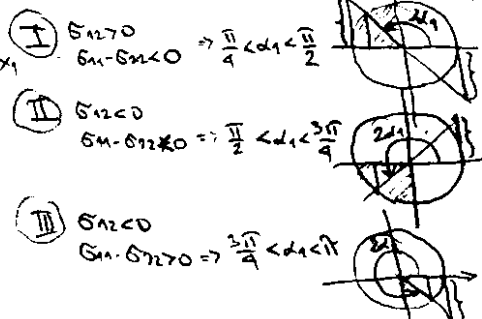 I σ12>0
x1 σ11-σ22<0 => π/4 <α1< π/2
2α1
II σ12<0
σ11-σ22<0 => π/2 <α1< 3π/4
2α1
III σ12<0
σ11-σ22>0 => 3π/4 <α1<π